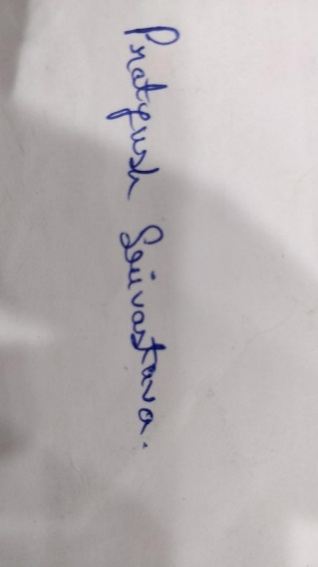 Pratyush Srivastava.